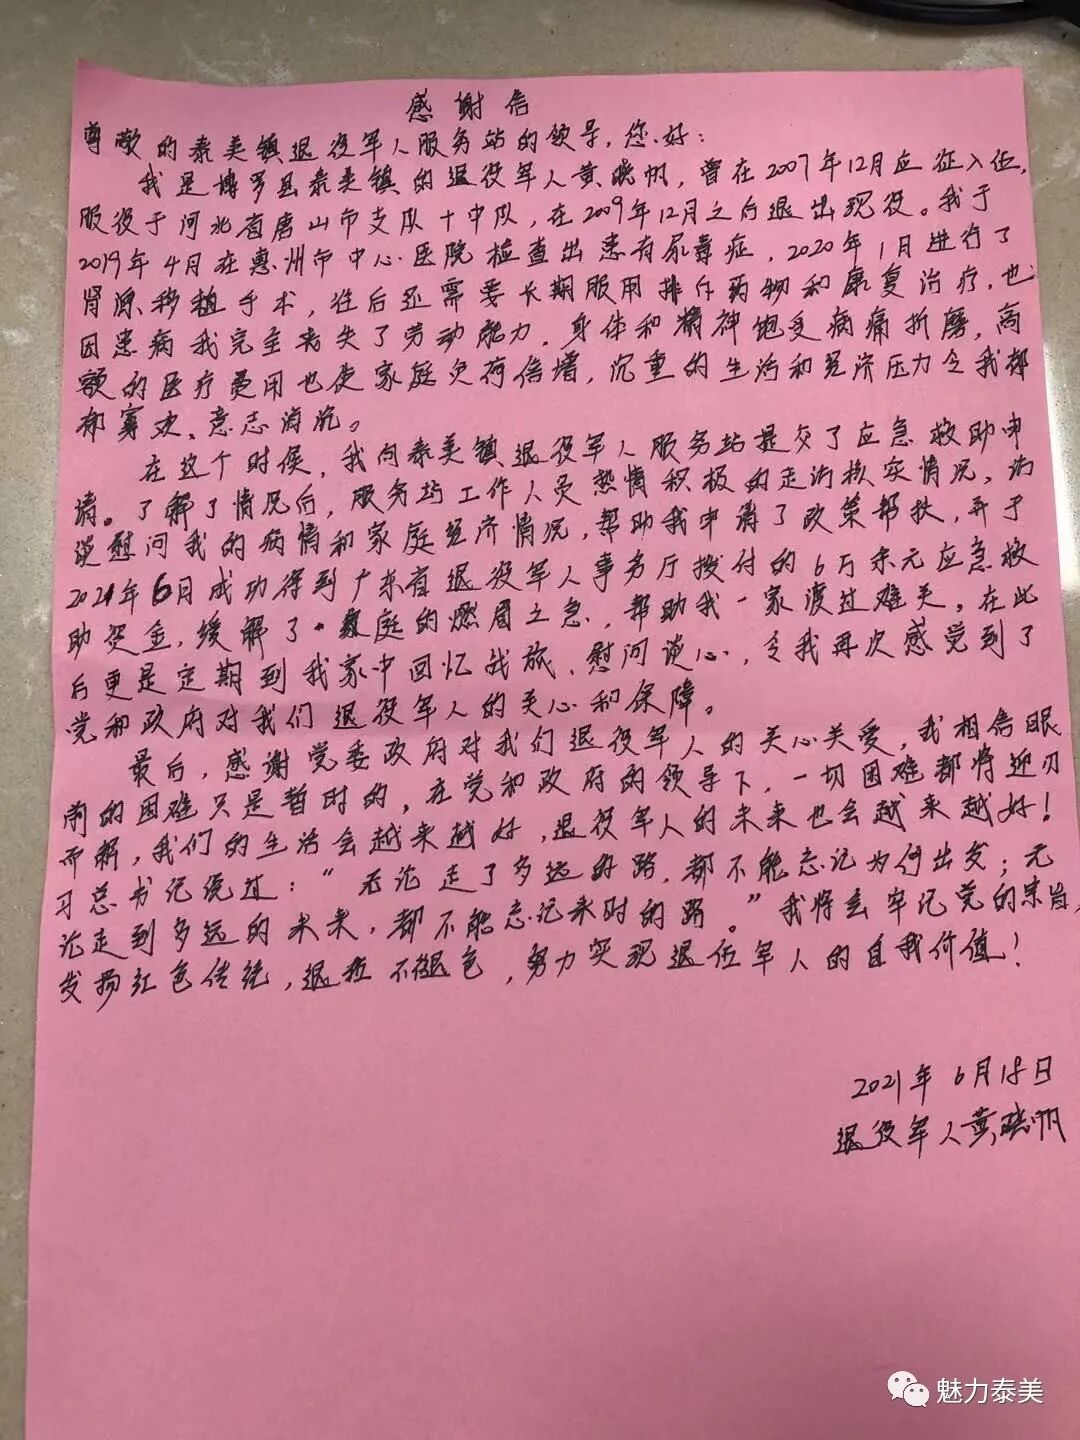 感谢信
尊敬的泰美镇退役军人服务站的领导，您好：
我是博罗县泰美镇的退役军人黄晓帆，曾在2007年12月应征入伍，
服役于河北省唐山市支队十中队，在2009年12月之后退出现役。我于
2019年4月在惠州市中心医院检查出患有尿毒症，2020年1月进行了
肾源移植手术，往后还需要长期服用排斥药物和康复治疗，也
因患病我完全丧失了劳动能力，身体和精神饱受病痛折磨，高
额的医疗费用也使家庭负荷倍增，沉重的生活和经济压力令我郁
郁寡欢、意志消沉。
在这个时候，我向泰美镇退役军人服务站提交了应急救助申
请。了解了情况后，服务站工作人员热情积极的走访核实情况，访
谈慰问我的病情和家庭经济情况，帮助我申请了政策帮扶，并于
2021年6月成功得到广东省退役军人事务厅拨付的6万余元应急救
助资金，缓解了家庭的燃眉之急，帮助我一家渡过难关。在此
后更是定期到我家中回忆战旅、慰问谈心，令我再次感觉到了
党和政府对我们退役军人的关心和保障。
最后，感谢党委政府对我们退役军人的关心关爱，我相信眼
前的困难只是暂时的，在党和政府的领导下，一切困难都将迎刃
而解，我们的生活会越来越好，退役军人的未来也会越来越好！
习总书记说过：“无论走了多远的路，都不能忘记为何出发；无
论走到多远的未来，都不能忘记来时的路。”我将会牢记党的宗旨，
发扬红色传统，退役不褪色，努力实现退伍军人的自我价值！
2021年6月18日
退役军人黄晓帆
魅力泰美